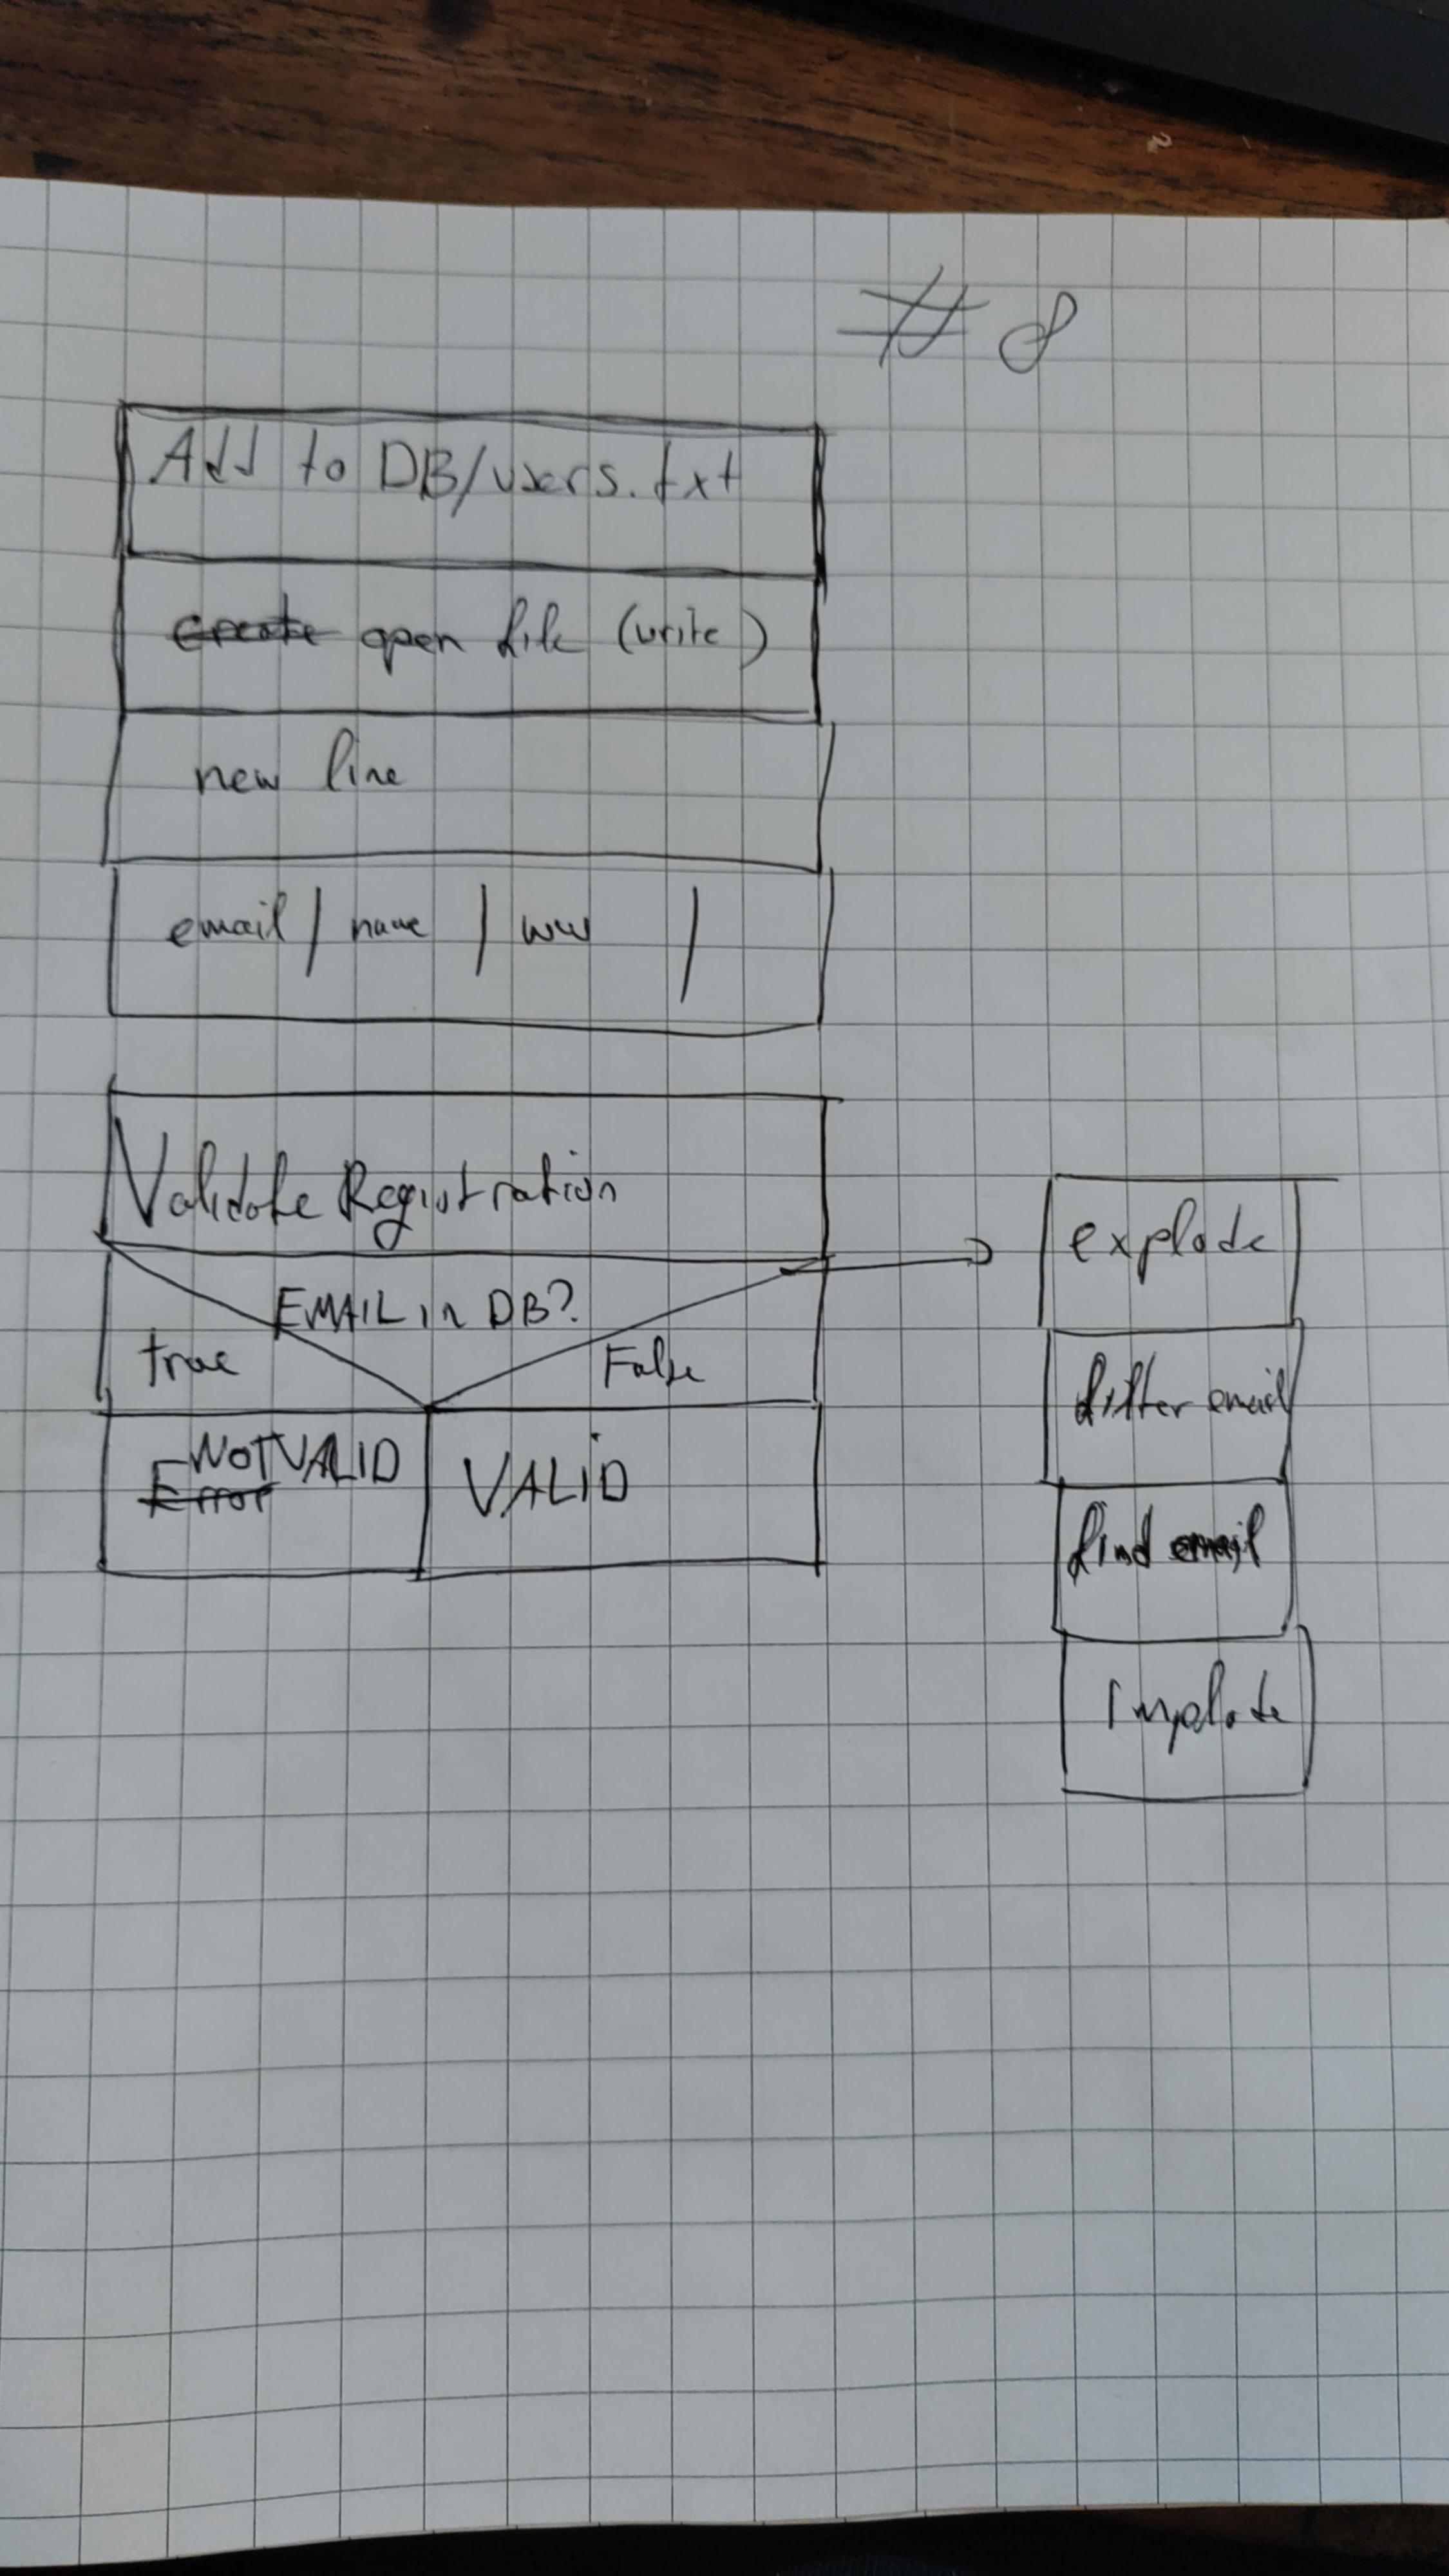 # 8
Add to DB/users.txt
create open file (write)
new line
email | name | ww |
Validate Registration
EMAIL in DB?
true False
NOT VALID
Error
VALID
explode
filter email
find email
implode